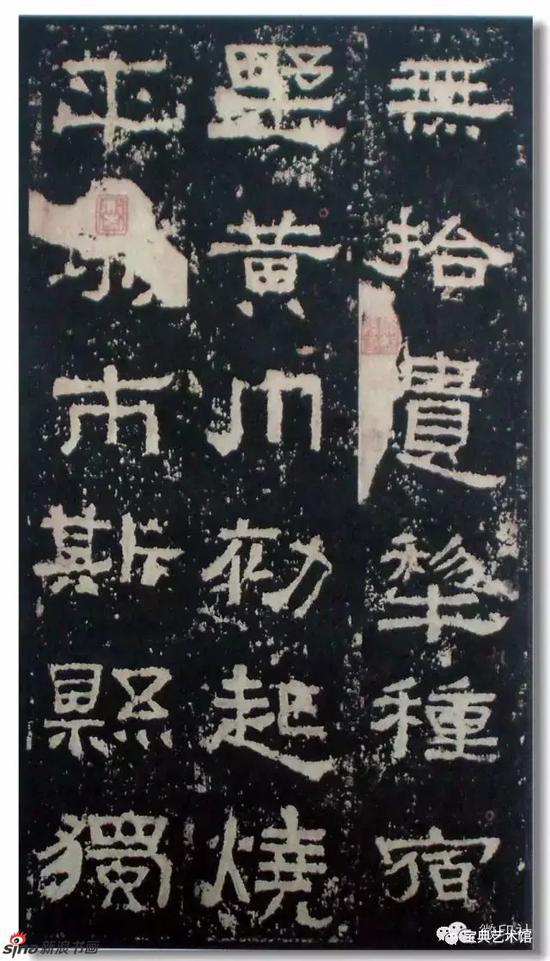 無拾遺犁種宿
野黃巾初起燒
平市斯縣獨
sina新浪书画
宝典艺术馆